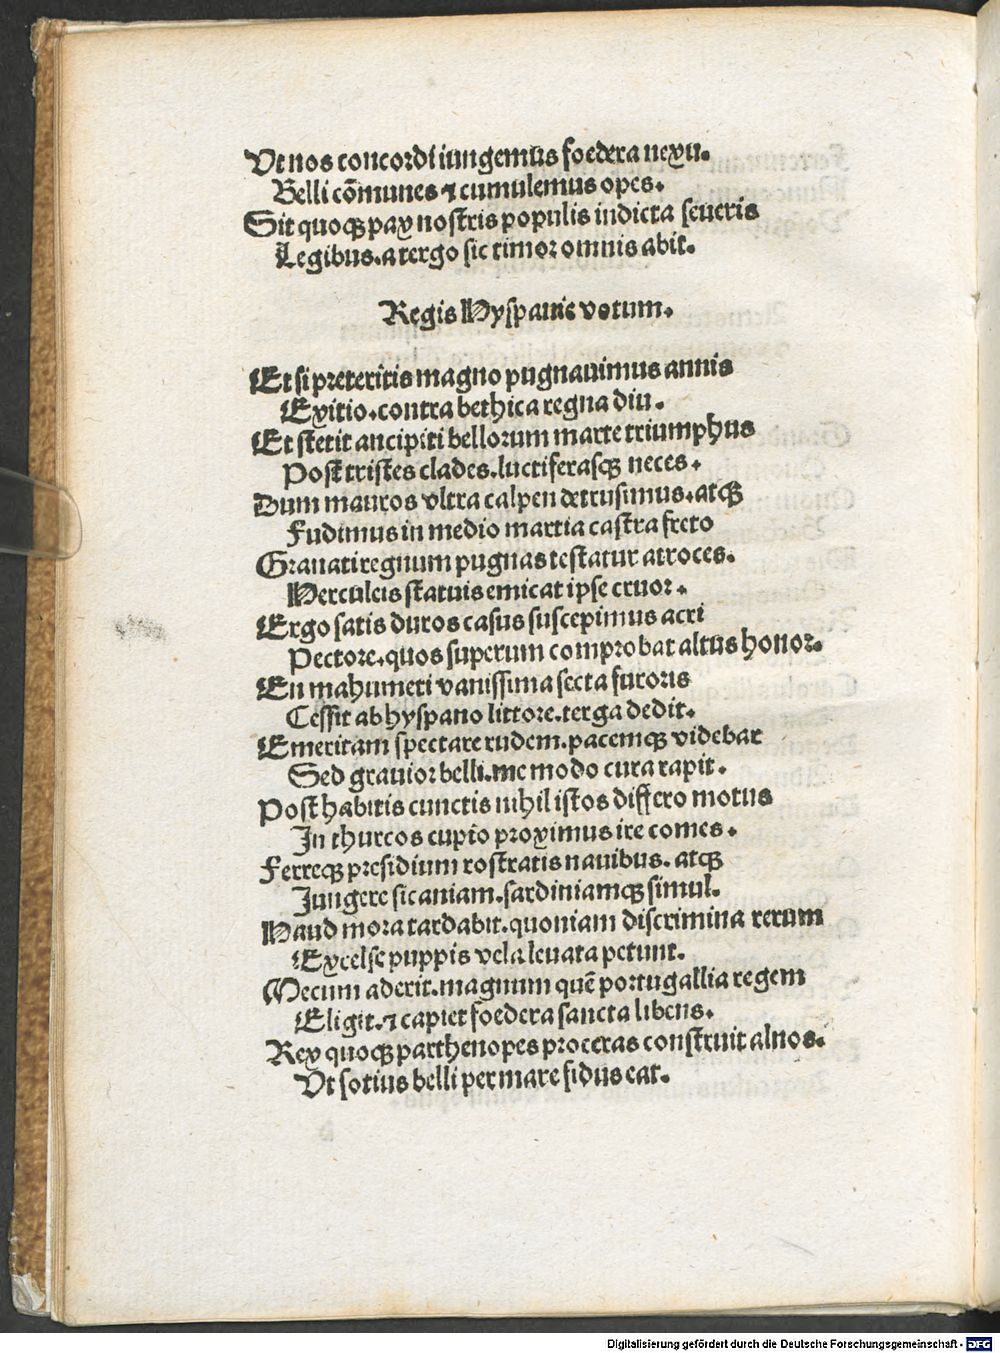 Vt nos concordi iungemus foedera nexu.
Belli cōmunes ⁊ cumulemus opes.
Sit quoqꝫ pax nostris populis indicta seueris
Legibus. a tergo sic timor omnis abit.
Regis Hyspanie votum.
Et si preteritis magno pugnauimus annis
Exitio. contra bethica regna diu.
Et stetit ancipiti bellorum marte triumphus
Post tristes clades. luctiferasqꝫ neces.
Dum mauros vltra calpen detrusimus. atqꝫ
Fudimus in medio martia castra freto
Granati regnum pugnas testatur atroces.
Herculeis statuis emicat ipse cruor.
Ergo satis duros casus suscepimus acri
Pectore. quos superum comprobat altus honor.
En mahumeti vanissima secta furoris
Cessit ab hyspano littore. terga dedit.
Emeritam spectare rudem. pacemqꝫ videbar
Sed grauior belli. me modo cura rapit.
Post habitis cunctis nihil istos differo motus
In thurcos cupio proximus ire comes.
Ferreqꝫ presidium rostratis nauibus. atqꝫ
Jungere sicaniam. sardiniamqꝫ simul.
Haud mora tardabit. quoniam discrimina rerum
Excelse puppis vela leuata petunt.
Mecum aderit. magnum quē portugallia regem
Eligit. ⁊ capiet foedera sancta libens.
Rex quoqꝫ parthenopes proceras construit alnos.
Vt sotius belli per mare fidus eat.
Digitalisierung gefördert durch die Deutsche Forschungsgemeinschaft - DFG